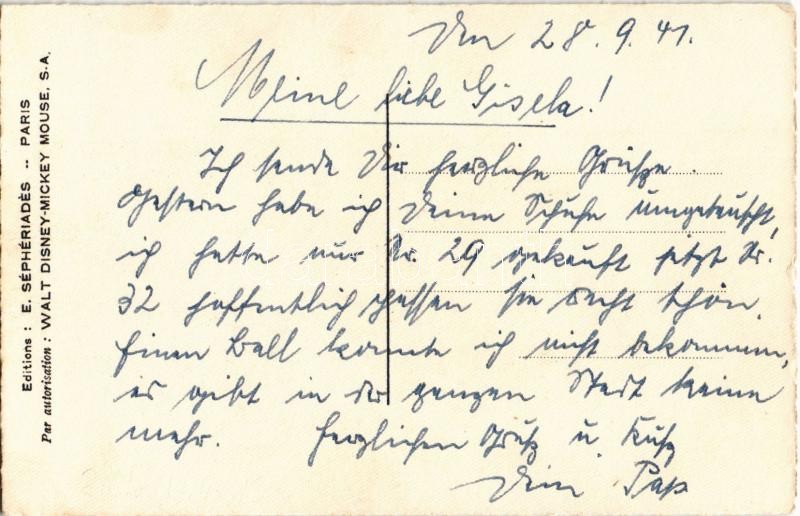 Den 28.9.41.
Meine liebe Gisela!
Ich sende Dir herzliche Grüße.
Gestern habe ich Deine Schuhe umgetauscht,
ich hatte nur Nr. 29 gekauft jetzt Nr.
32 hoffentlich passen sie recht schön.
Einen Ball konnte ich nicht bekommen,
es gibt in der ganzen Stadt keine
mehr. Herzlichen Gruß u. Kuß
Dein Pap
Editions : E. SÉPHÉRIADÈS -- PARIS
Par autorisation : WALT DISNEY-MICKEY MOUSE. S.A.